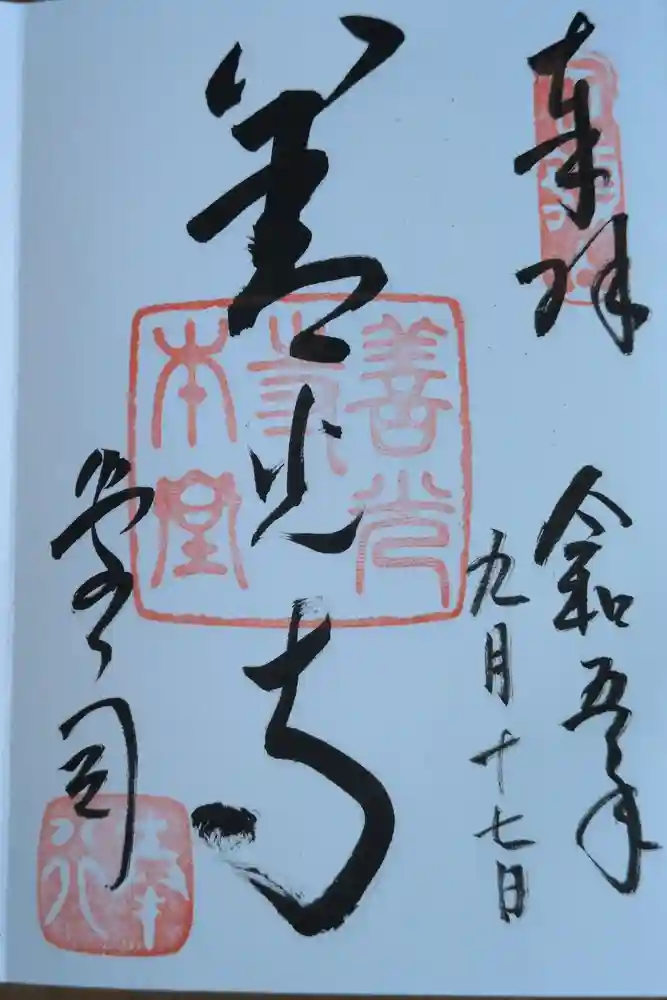 奉拝
令和五年
九月十七日
善光寺
堂司
善光
寺
本堂
奉行